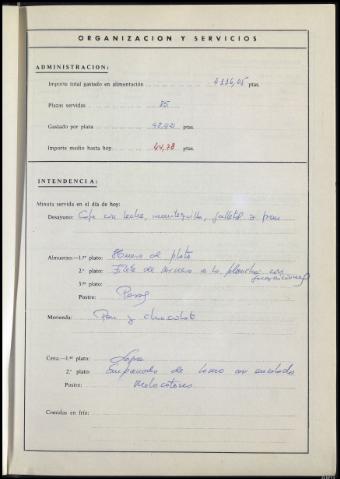 ORGANIZACION Y SERVICIOS
ADMINISTRACION:
Importe total gastado en alimentación ptas.
Plazas servidas 85
Gastado por plaza ptas.
Importe medio hasta hoy 44,78 ptas.
INTENDENCIA:
Minuta servida en el día de hoy:
Desayuno: Cafe con leche, mantequilla, galletas y pan
Almuerzo:—1.er plato: Huevos al plato
2.º plato: Filete de ternera a la plancha con
guarnicion
3.er plato:
Postre: Peras
Merienda: Pan y chocolate
Cena.—1.er plato: Sopa
2.º plato: Empanada de lomo con ensalada
Postre: Melocotones
Comidas en frío: